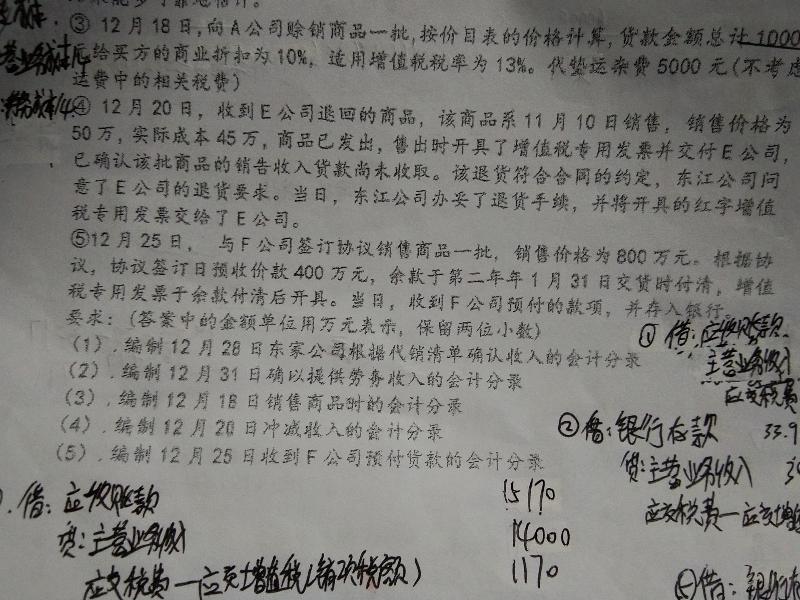 ③ 12月18日,向A公司赊销商品一批,按价目表的价格计算,货款金额总计1000
给买方的商业折扣为10%,适用增值税税率为13%。代垫运杂费5000元(不考虑
运费中的相关税费)
④ 12月20日,收到E公司退回的商品,该商品系11月10日销售,销售价格为
50万,实际成本45万,商品已发出,售出时开具了增值税专用发票并交付E公司,
已确认该批商品的销告收入货款尚未收取。该退货符合合同的约定,东江公司同
意了E公司的退货要求。当日,东江公司办妥了退货手续,并将开具的红字增值
税专用发票交给了E公司。
⑤12月25日, 与F公司签订协议销售商品一批,销售价格为800万元。根据协
议,协议签订日预收价款400万元,余款于第二年年1月31日交货时付清,增值
税专用发票于余款付清后开具。当日,收到F公司预付的款项,并存入银行。
要求:(答案中的金额单位用万元表示,保留两位小数)
(1).编制12月28日东家公司根据代销清单确认收入的会计分录
(2).编制12月31日确以提供劳务收入的会计分录
(3).编制12月18日销售商品时的会计分录
(4).编制12月20日冲减收入的会计分录
(5).编制12月25日收到F公司预付货款的会计分录
① 借:应收账款
主营业务收入
应交税费
②借:银行存款 33.9
贷:主营业务收入
应交税费一应交增
借:应收账款 15170
贷:主营业务收入 14000
应交税费一应交增值税(销项税额) 1170
⑤借:银行存